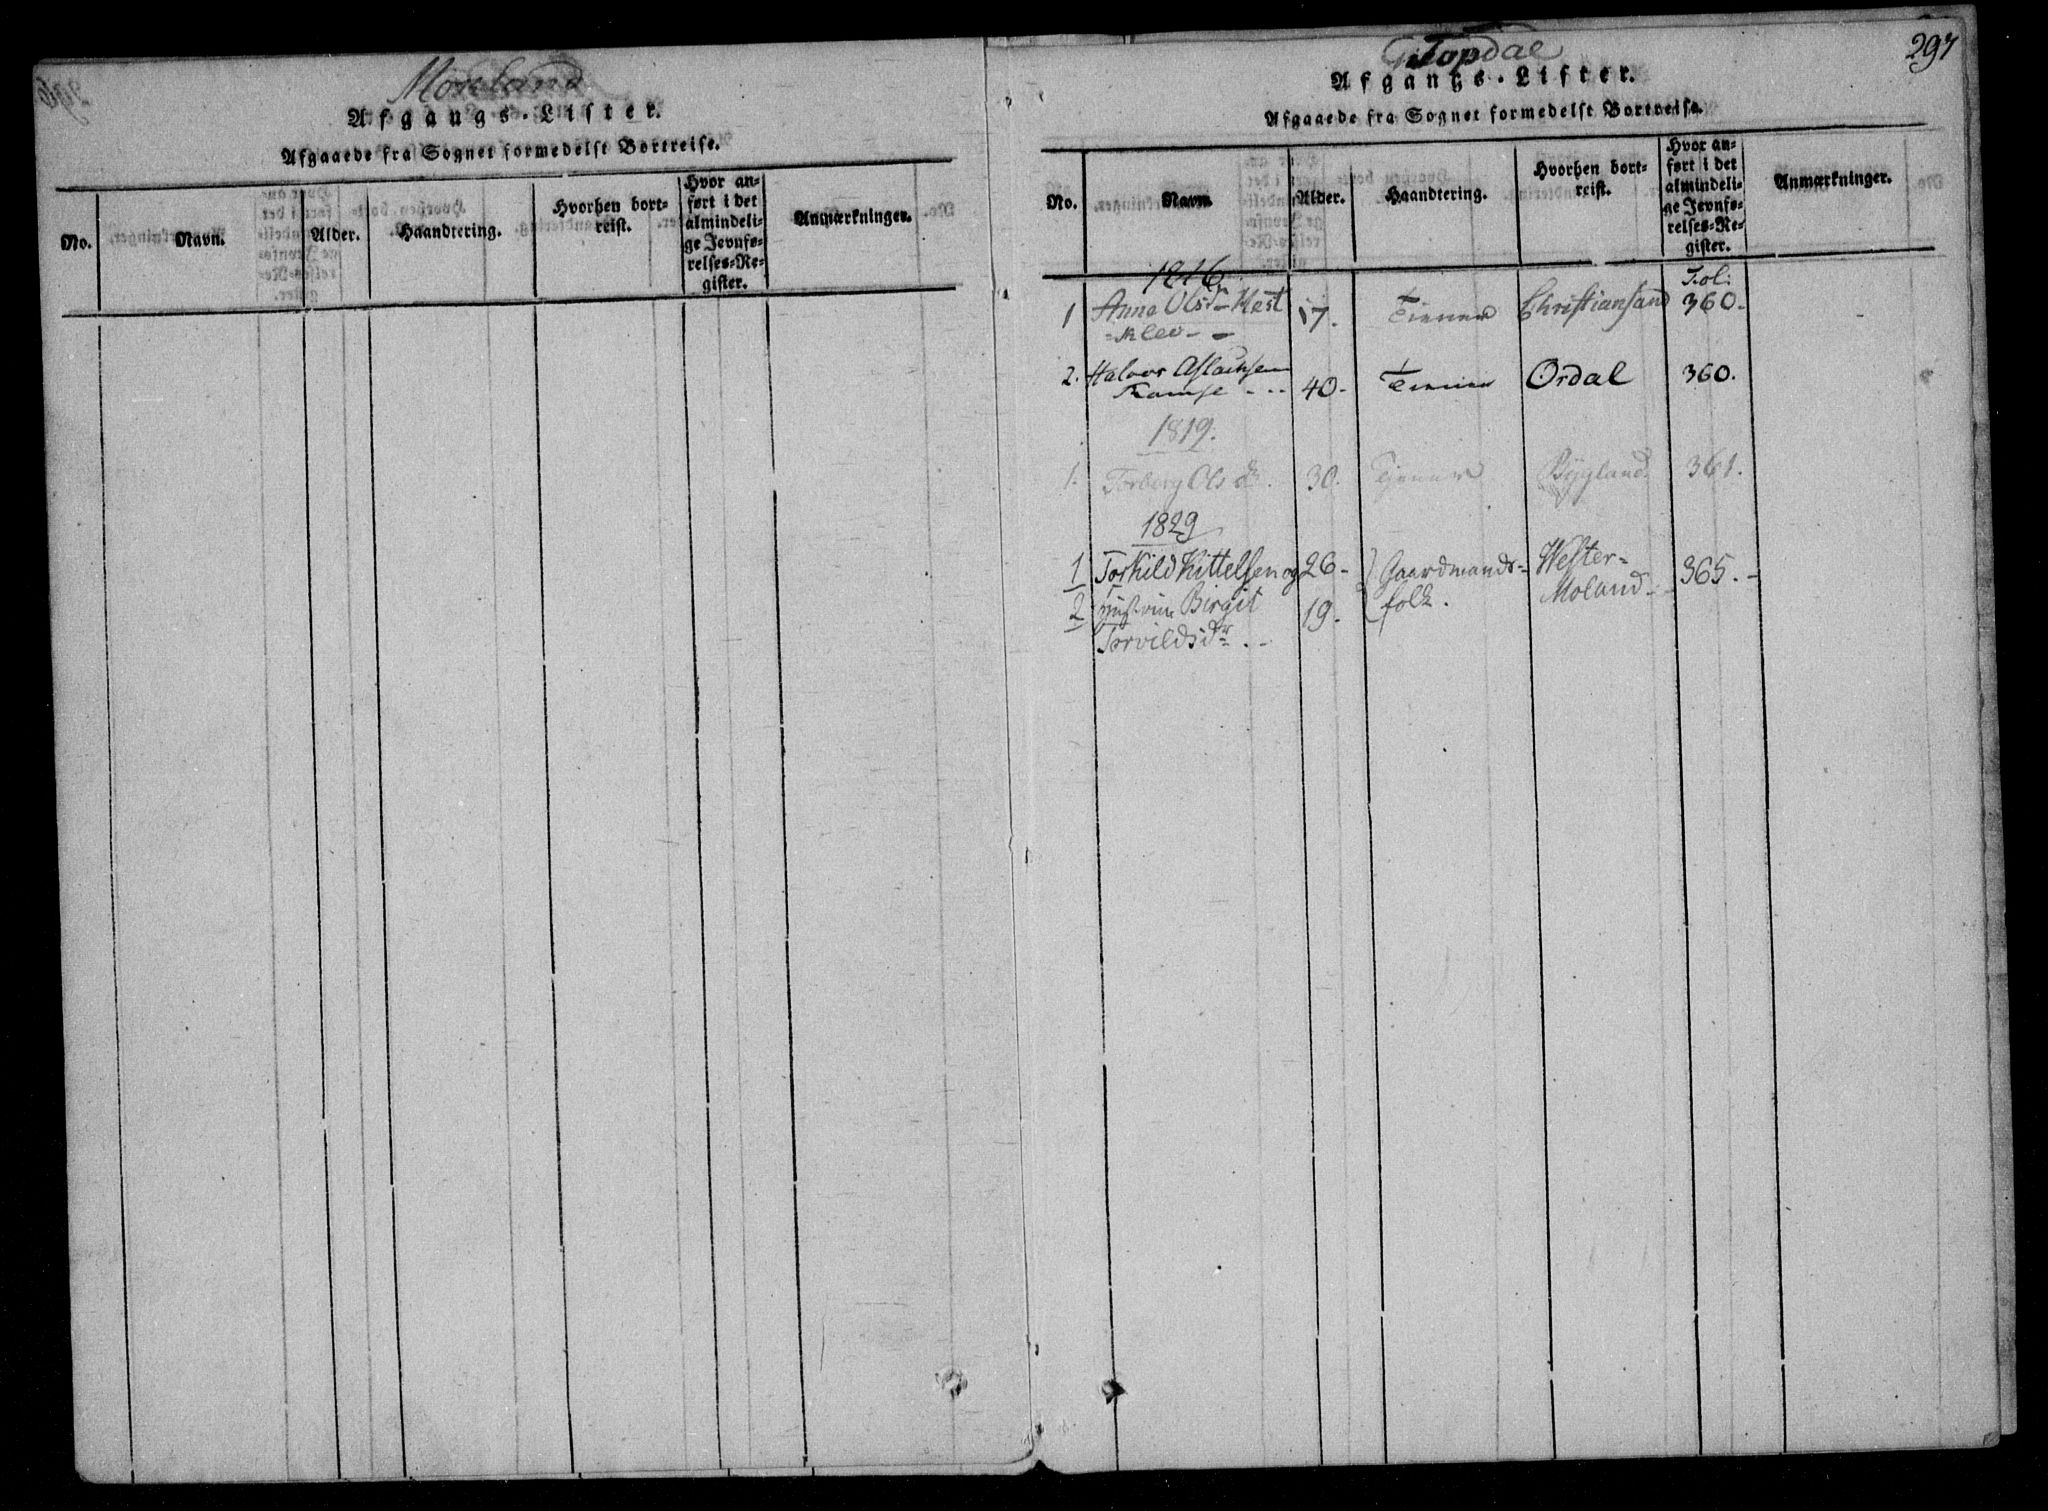 Moreland
Afgangs-Lister.
Afgaaede fra Sognet formedelst Bortreise.
No. Navn. Alder. Haandtering. Hvorhen bort-reist. Hvor an-ført i det almindeli-ge Jevnfø-relses-Re-gister. Anmærkninger.
297
Topdal
Afgangs-Lister.
Afgaaede fra Sognet formedelst Bortreise.
No. Navn. Alder. Haandtering. Hvorhen bort-reist. Hvor an-ført i det almindeli-ge Jevnfø-relses-Re-gister. Anmærkninger.
1816 Fol:
1 Anne Olsdr Hest 17. Tiener Christiansand 360.
=klev - -
2. Halvor Aslachsen 40. Tiener Ordal 360.
Ramse - - -
1819.
1. Torberg Olsdr. 30. Tjener Bygland. 361.
1829
1 Torkild Kittelsen og 26 - Gaardmands- Wester- 365. -
2 Hustrue Birgit 19. folk. Moland -
Torvildsdr. -